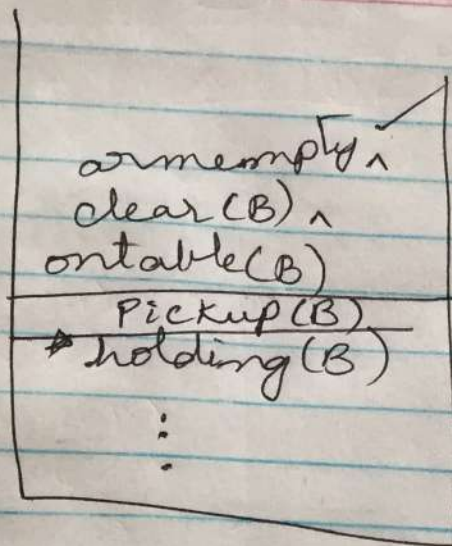 armempty ^
clear (B) ^
ontable (B)
Pickup (B)
holding (B)
⋮